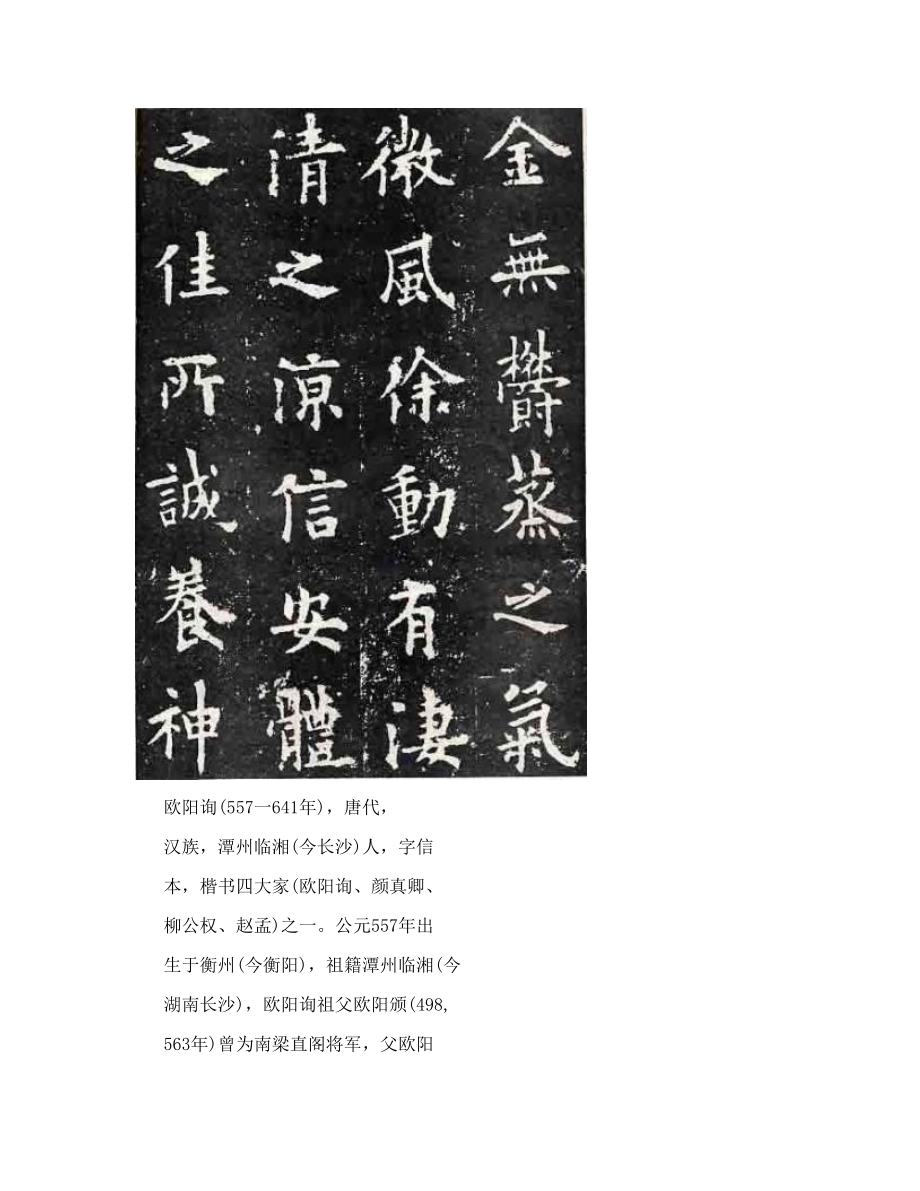 金無欝蒸之氣
微風徐動有淒
清之涼信安體
之佳所誠養神
欧阳询(557一641年)，唐代，
汉族，潭州临湘(今长沙)人，字信
本，楷书四大家(欧阳询、颜真卿、
柳公权、赵孟)之一。公元557年出
生于衡州(今衡阳)，祖籍潭州临湘(今
湖南长沙)，欧阳询祖父欧阳颁(498,
563年)曾为南梁直阁将军，父欧阳